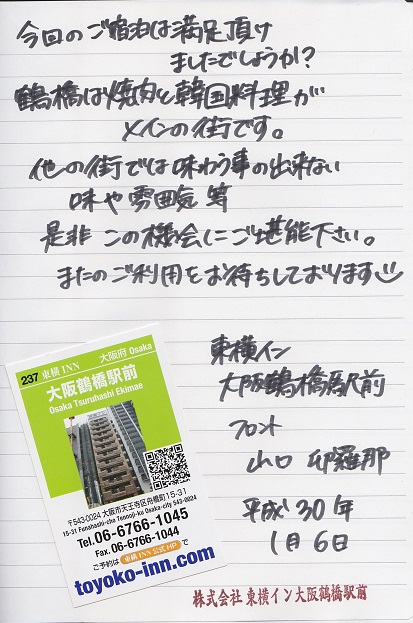 今回のご宿泊は満足頂け
ましたでしょうか?
鶴橋は焼肉と韓国料理が
メインの街です。
他の街では味わう事の出来ない
味や雰囲気等
是非この機会にご堪能下さい。
またのご利用をお待ちしております
東横イン
大阪鶴橋駅前
フロント
山口
平成30年
1月6日
237 東横INN 大阪府 Osaka
大阪鶴橋駅前
Osaka Tsuruhashi Ekimae
〒543-0024 大阪市天王寺区舟橋町15-31
15-31 Funahashi-cho Tennoji-ku Osaka-city 543-0024
Tel.06-6766-1045
Fax.06-6766-1044
ご予約は 東横INN公式HP で
toyoko-inn.com
株式会社 東横イン大阪鶴橋駅前